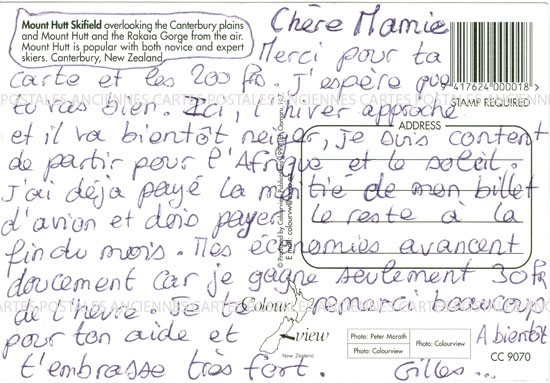 Mount Hutt Skifield overlooking the Canterbury plains
and Mount Hutt and the Rakaia Gorge from the air.
Mount Hutt is popular with both novice and expert
skiers. Canterbury, New Zealand.
Chère Mamie
Merci pour ta
carte et les 200 frs. J'espère que
tu vas bien. Ici, l'hiver approche
et il va bientôt neiger, je suis content
de partir pour l'Afrique et le soleil.
J'ai déja payé la moitié de mon billet
d'avion et dois payer le reste à la
fin du mois. Mes économies avancent
doucement car je gagne seulement 30 frs
de l'heure. Je te remerci beaucoup
pour ton aide et
t'embrasse très fort.
A bientôt
Gilles...
9 417624 000018 >
STAMP REQUIRED
ADDRESS
POSTALES ANCIENNES CARTES POSTALES ANCIENNES CARTES POSTALES ANCIENNES
CARTES POSTALES ANCIENNES CARTES POSTALES ANCIENNES CARTES POSTALES
Colour
view
New Zealand
Photo: Peter Morath
Photo: Colourview
Photo: Colourview
CC 9070